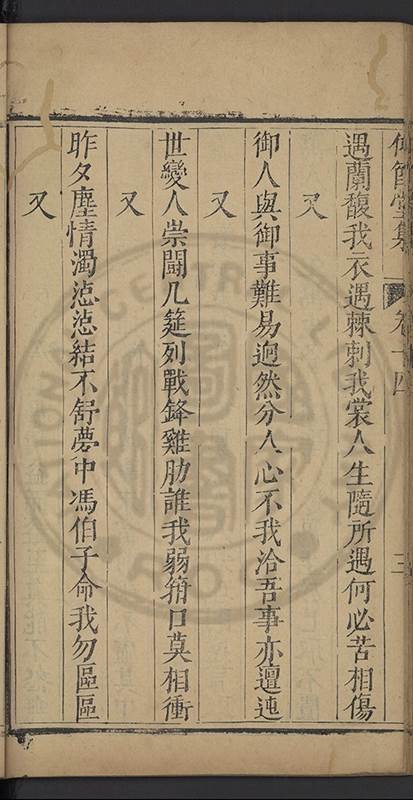 尚節堂集　卷十四　三
遇蘭馥我衣遇棘刺我裳人生隨所遇何必苦相傷
又
御人與御事難易迥然分人心不我洽吾事亦邅迍
又
世變人崇鬪几筵列戰鋒雞肋誰我弱箝口莫相衝
又
昨夕塵情濁惉惉結不舒夢中馮伯子命我勿區區
又